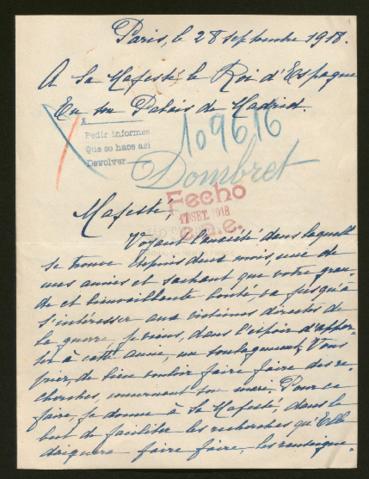 Paris, le 28 septembre 1918.
A Sa Majesté le Roi d'Espagne
En son Palais de Madrid.
Pedir informes
Que se hace así
Devolver
109616
Dombret
Fecho
SET. 1918
Majesté,
Voyant l'anxiété dans laquelle
se trouve depuis deux mois, une de
mes amies et sachant que votre gran-
de et bienveillante bonté va jusqu'à
s'intéresser aux victimes directes de
la guerre, je viens, dans l'espoir d'appor-
ter à cette amie, un soulagement, Vous
prier, de bien vouloir faire faire des re-
cherches, concernant son mari. Pour ce
faire, je donne à Sa Majesté, dans le
but de faciliter les recherches qu'Elle
daignera faire faire, les renseigne-